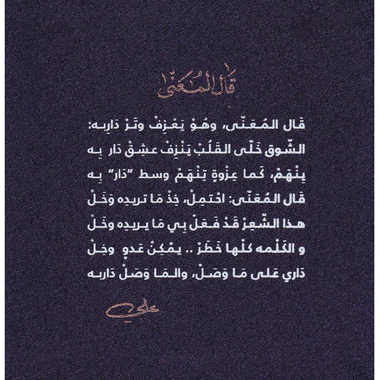 قال المُعَنّى
قَال المُعَنّى، وهُوْ يَعْزِفْ وتَرْ دَارِبه:
الشّوق خَلّى القَلْبْ يَنْزِفْ عشِقْ دَار به
يِنْهَمْ، كَما عِزْوةٍ تَنْهَمْ وسط "دَار" به
قَال المُعَنّى: احْتِمِلْ، خِذْ مَا تريده وخَلْ
هذا الشِّعِرْ قَدْ فعَلْ بِي مَا يريده وخَلْ
و الكَلْمه كلّها خَطَرْ .. يمْكِنْ عَدوٍ وخِلْ
دَاري عَلى مَا وَصَلْ، والـمَا وَصَلْ دَاربه
علي